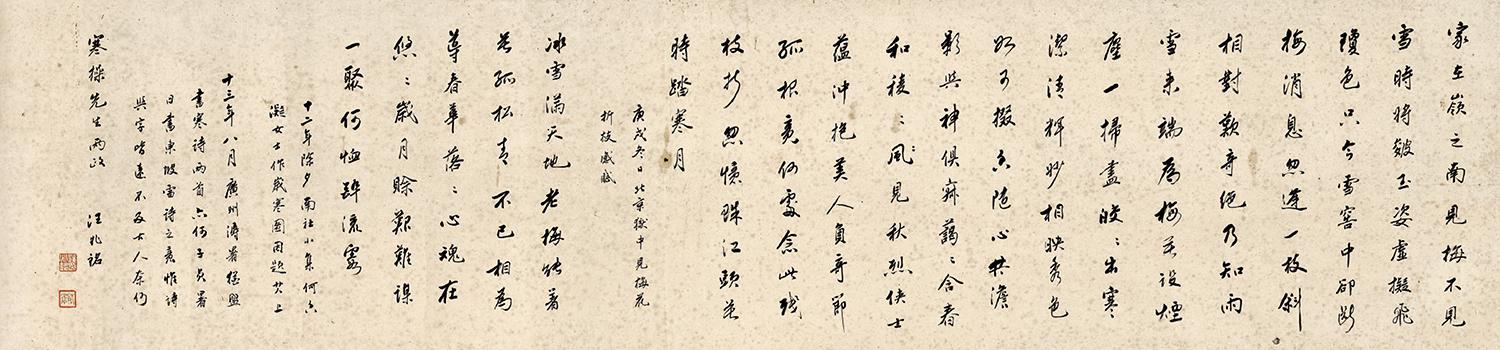 家在嶺之南見梅不見
雪時將皴玉姿虛擬飛
瓊色只今雪窖中卻斷
梅消息忽逢一枝斜
相對歎奇絕乃知雨
雪來端為梅花設煙
塵一掃盡皎〻出寒
潔清輝妙相映秀色
如可掇香隨心共澹
影與神俱寂藹〻含春
和稜〻風〻見秋烈俠士
蘊沖抱美人負奇節
孤根竟何處念此殘
枝折忽憶珠江頭花
時踏寒月
庚戌冬日北京獄中見梅花
折枝感賦
冰雪滿天地老梅能著
花孤松青不已相為
導春華落〻心魂在
悠〻歲月賒艱難謀
一聚何恤鉢流霞
十二年除夕南社小集何六
凝女士作歲寒圖因題其上
十三年八月廣州濤暑猛盛
書寒詩兩首六何子貞暑
日書東坡雪詩之意惟詩
與字皆遠不及古人奈何
寒操先生兩政
汪兆銘